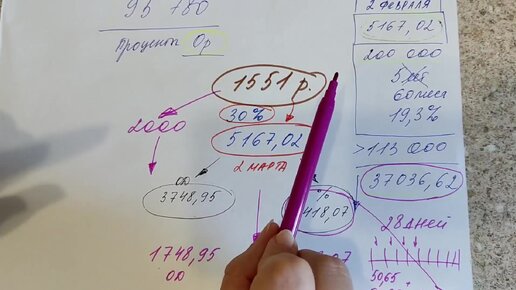 95 780
Проценты 0р
1551 р.
2000
30%
5167,02
2 МАРТА
ОД
3748,95
%
418,07
1748,95
ОД
07
2 ФЕВРАЛЯ
5167,02
200 000
5 лет
60 мес
19,3%
>113 000
37036,62
28 ДНЕЙ
50,65